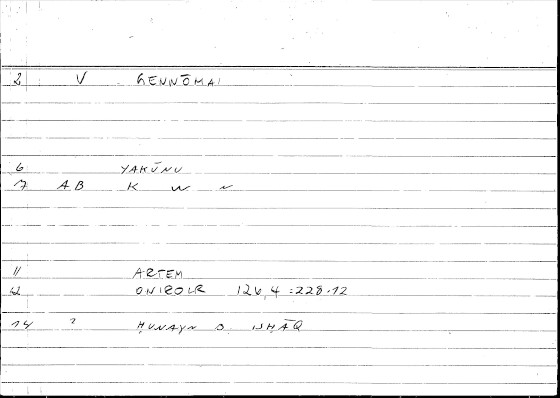 2 V GENNŌMAI
6 YAKŪNU
7 AB K W N
11 ARTEM
12 ONIROCR 126,4 :228.12
14 ? ḤUNAYN B. ISḤĀQ